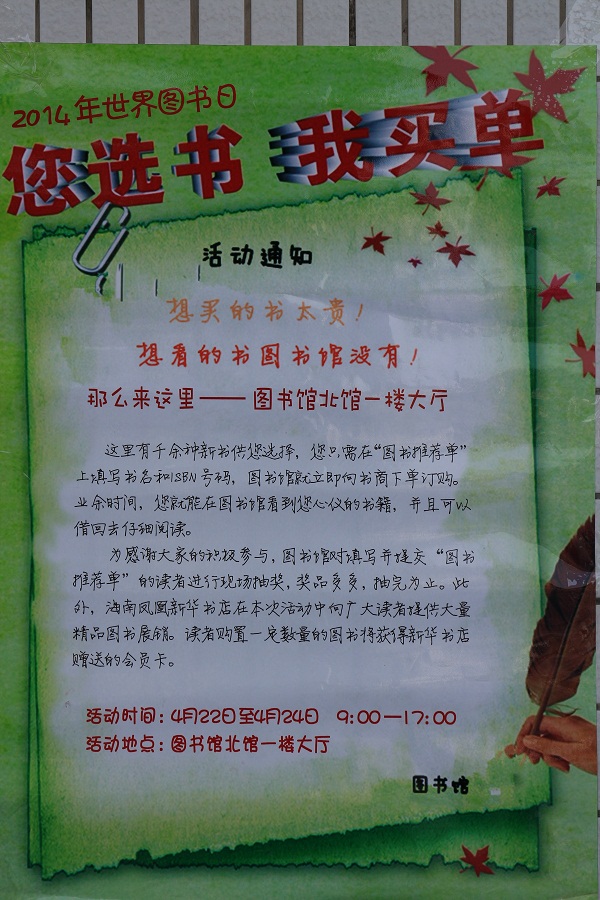 2014年世界图书日
您选书 我买单
活动通知
想买的书太贵！
想看的书图书馆没有！
那么来这里——图书馆北馆一楼大厅
这里有千余种新书供您选择，您只需在“图书推荐单”
上填写书名和ISBN号码，图书馆就立即向书商下单订购。
业余时间，您就能在图书馆看到您心仪的书籍，并且可以
借回去仔细阅读。
为感谢大家的积极参与，图书馆对填写并提交“图书
推荐单”的读者进行现场抽奖，奖品多多，抽完为止。此
外，海南凤凰新华书店在本次活动中向广大读者提供大量
精品图书展销。读者购置一定数量的图书将获得新华书店
赠送的会员卡。
活动时间：4月22日至4月24日 9:00—17:00
活动地点：图书馆北馆一楼大厅
图书馆